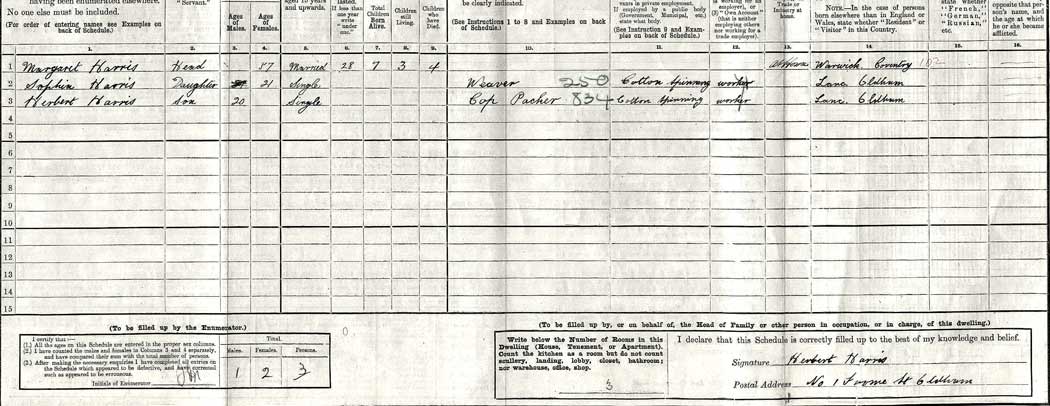 having been enumerated elsewhere.
No one else must be included.
(For order of entering names see Examples on
back of Schedule.)
"Servant."
Ages
of
Males.
Ages
of
Females.
aged 15 years
and upwards.
lasted.
If less than
one year
write
"under
one."
Total
Children
Born
Alive.
Children
still
Living.
Children
who
have
Died.
be clearly indicated.
(See Instructions 1 to 8 and Examples on back
of Schedule.)
years in private employment.
If employed by a public body
(Government, Municipal, etc.)
state what body.
(See Instruction 9 and Exam-
ples on back of Schedule.)
is working for an
employer), or
(3) "Own Account"
(that is neither
employing others
nor working for a
trade employer).
Trade or
Industry at
home.
NOTE.—In the case of persons
born elsewhere than in England or
Wales, state whether "Resident" or
"Visitor" in this Country.
state whether
"French,"
"German,"
"Russian,"
etc.
opposite that per-
son's name, and
the age at
which he or she became
afflicted.
1. 2. 3. 4. 5. 6. 7. 8. 9. 10. 11. 12. 13. 14. 15. 16.
1 Margaret Harris Head 57 Married 28 7 3 4 At Home Warwick Coventry 107
2 Sophia Harris Daughter 21 Single Weaver 250 Cotton Spinning worker Lanc. Oldham
3 Herbert Harris Son 20 Single Cop Packer 834 Cotton Spinning worker Lanc. Oldham
4
5
6
7
8
9
10
11
12
13
14
15
(To be filled up by the Enumerator.)
I certify that:—
(1.) All the ages on this Schedule are entered in the proper sex columns.
(2.) I have counted the males and females in Columns 3 and 4 separately,
and have compared their sum with the total number of persons.
(3.) After making the necessary enquiries I have completed all entries on
the Schedule which appeared to be defective, and have corrected
such as appeared to be erroneous.
Initials of Enumerator
Total.
Males. Females. Persons.
1 2 3
(To be filled up by, or on behalf of, the Head of Family or other person in occupation, or in charge, of this dwelling.)
Write below the Number of Rooms in this
Dwelling (House, Tenement, or Apartment).
Count the kitchen as a room but do not count
scullery, landing, lobby, closet, bathroom;
nor warehouse, office, shop.
3
I declare that this Schedule is correctly filled up to the best of my knowledge and belief.
Signature Herbert Harris
Postal Address No 1 St Oldham